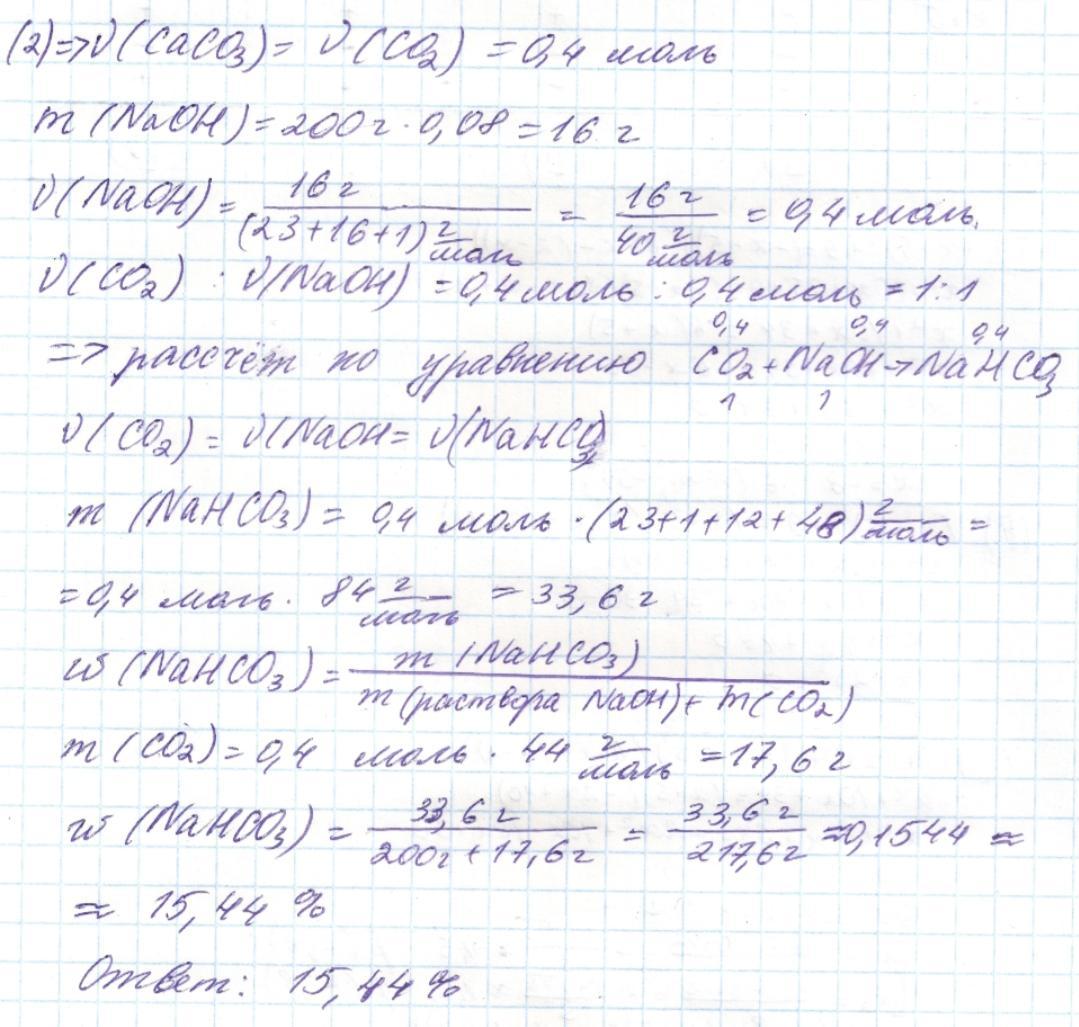 (2)=>ν(CaCO₃) = ν(CO₂) = 0,4 моль
m (NaOH) = 200г · 0,08 = 16 г
ν(NaOH) = 16г / (23+16+1) г/моль = 16г / 40 г/моль = 0,4 моль.
ν(CO₂) : ν(NaOH) = 0,4 моль : 0,4 моль = 1:1
0,4 0,4 0,4
=> рассчёт по уравнению CO₂ + NaOH → NaHCO₃
1 1
ν(CO₂) = ν(NaOH = ν(NaHCO₃)
m (NaHCO₃) = 0,4 моль · (23+1+12+48) г/моль =
= 0,4 моль · 84 г/моль = 33,6 г
w (NaHCO₃) = m (NaHCO₃) / m(раствора NaOH) + m(CO₂)
m (CO₂) = 0,4 моль · 44 г/моль = 17,6 г
w (NaHCO₃) = 33,6 г / 200г + 17,6г = 33,6 г / 217,6г ≈ 0,1544 ≈
≈ 15,44 %
Ответ: 15,44%